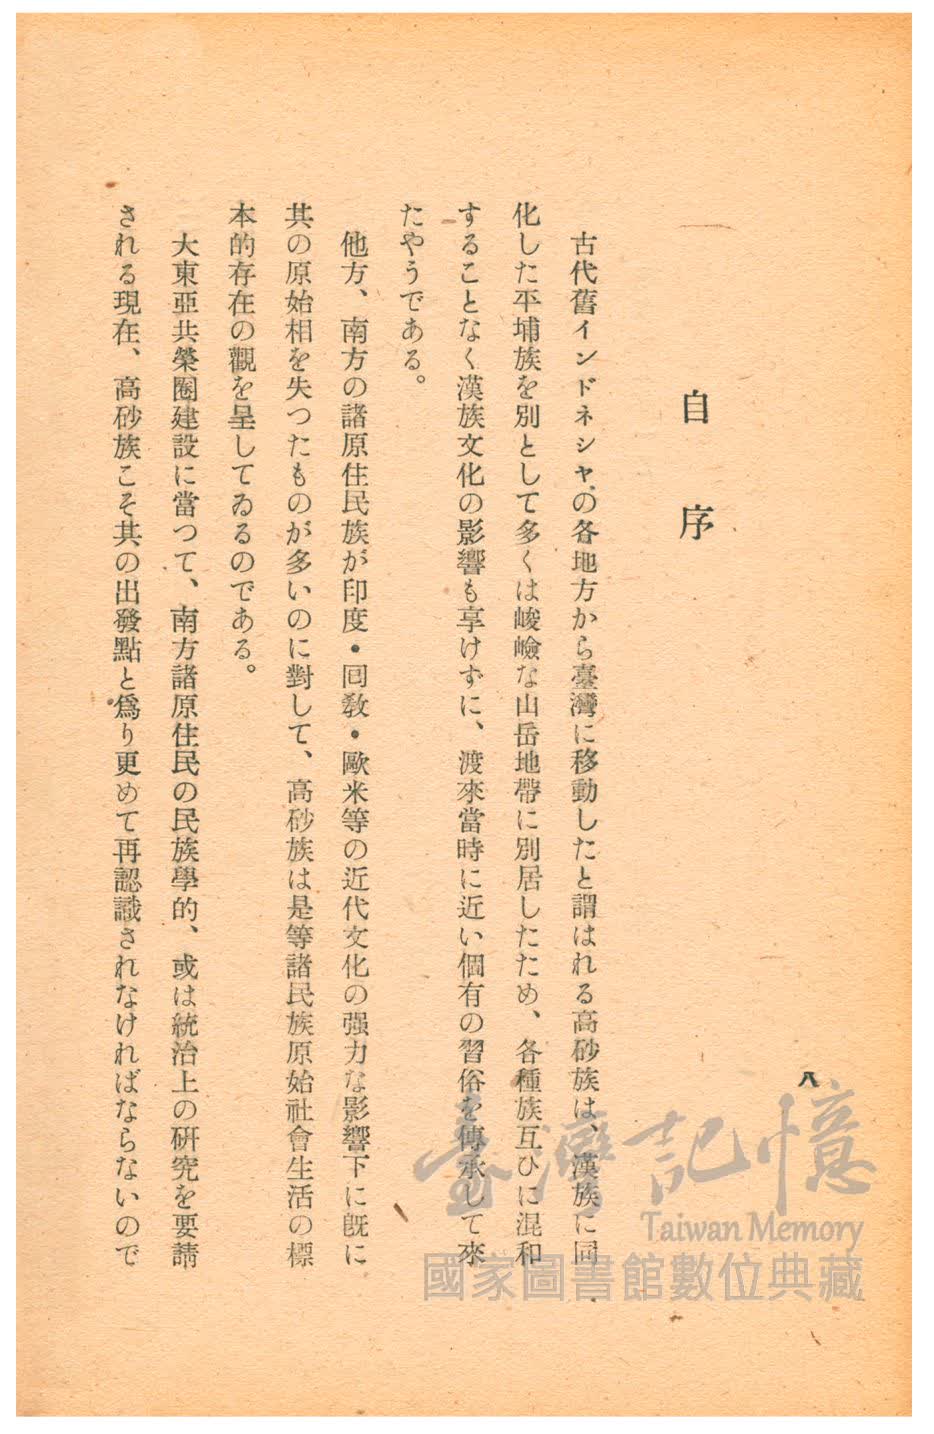 八
自序
古代舊インドネシヤの各地方から臺灣に移動したと謂はれる高砂族は、漢族に同
化した平埔族を別として多くは峻嶮な山岳地帶に別居したため、各種族互ひに混和
することなく漢族文化の影響も享けずに、渡來當時に近い個有の習俗を傳承して來
たやうである。
他方、南方の諸原住民族が印度・回敎・歐米等の近代文化の强力な影響下に既に
其の原始相を失つたものが多いのに對して、高砂族は是等諸民族原始社會生活の標
本的存在の觀を呈してゐるのである。
大東亞共榮圈建設に當つて、南方諸原住民の民族學的、或は統治上の硏究を要請
される現在、高砂族こそ其の出發點と爲り更めて再認識されなければならないので
臺灣記憶
Taiwan Memory
國家圖書館數位典藏